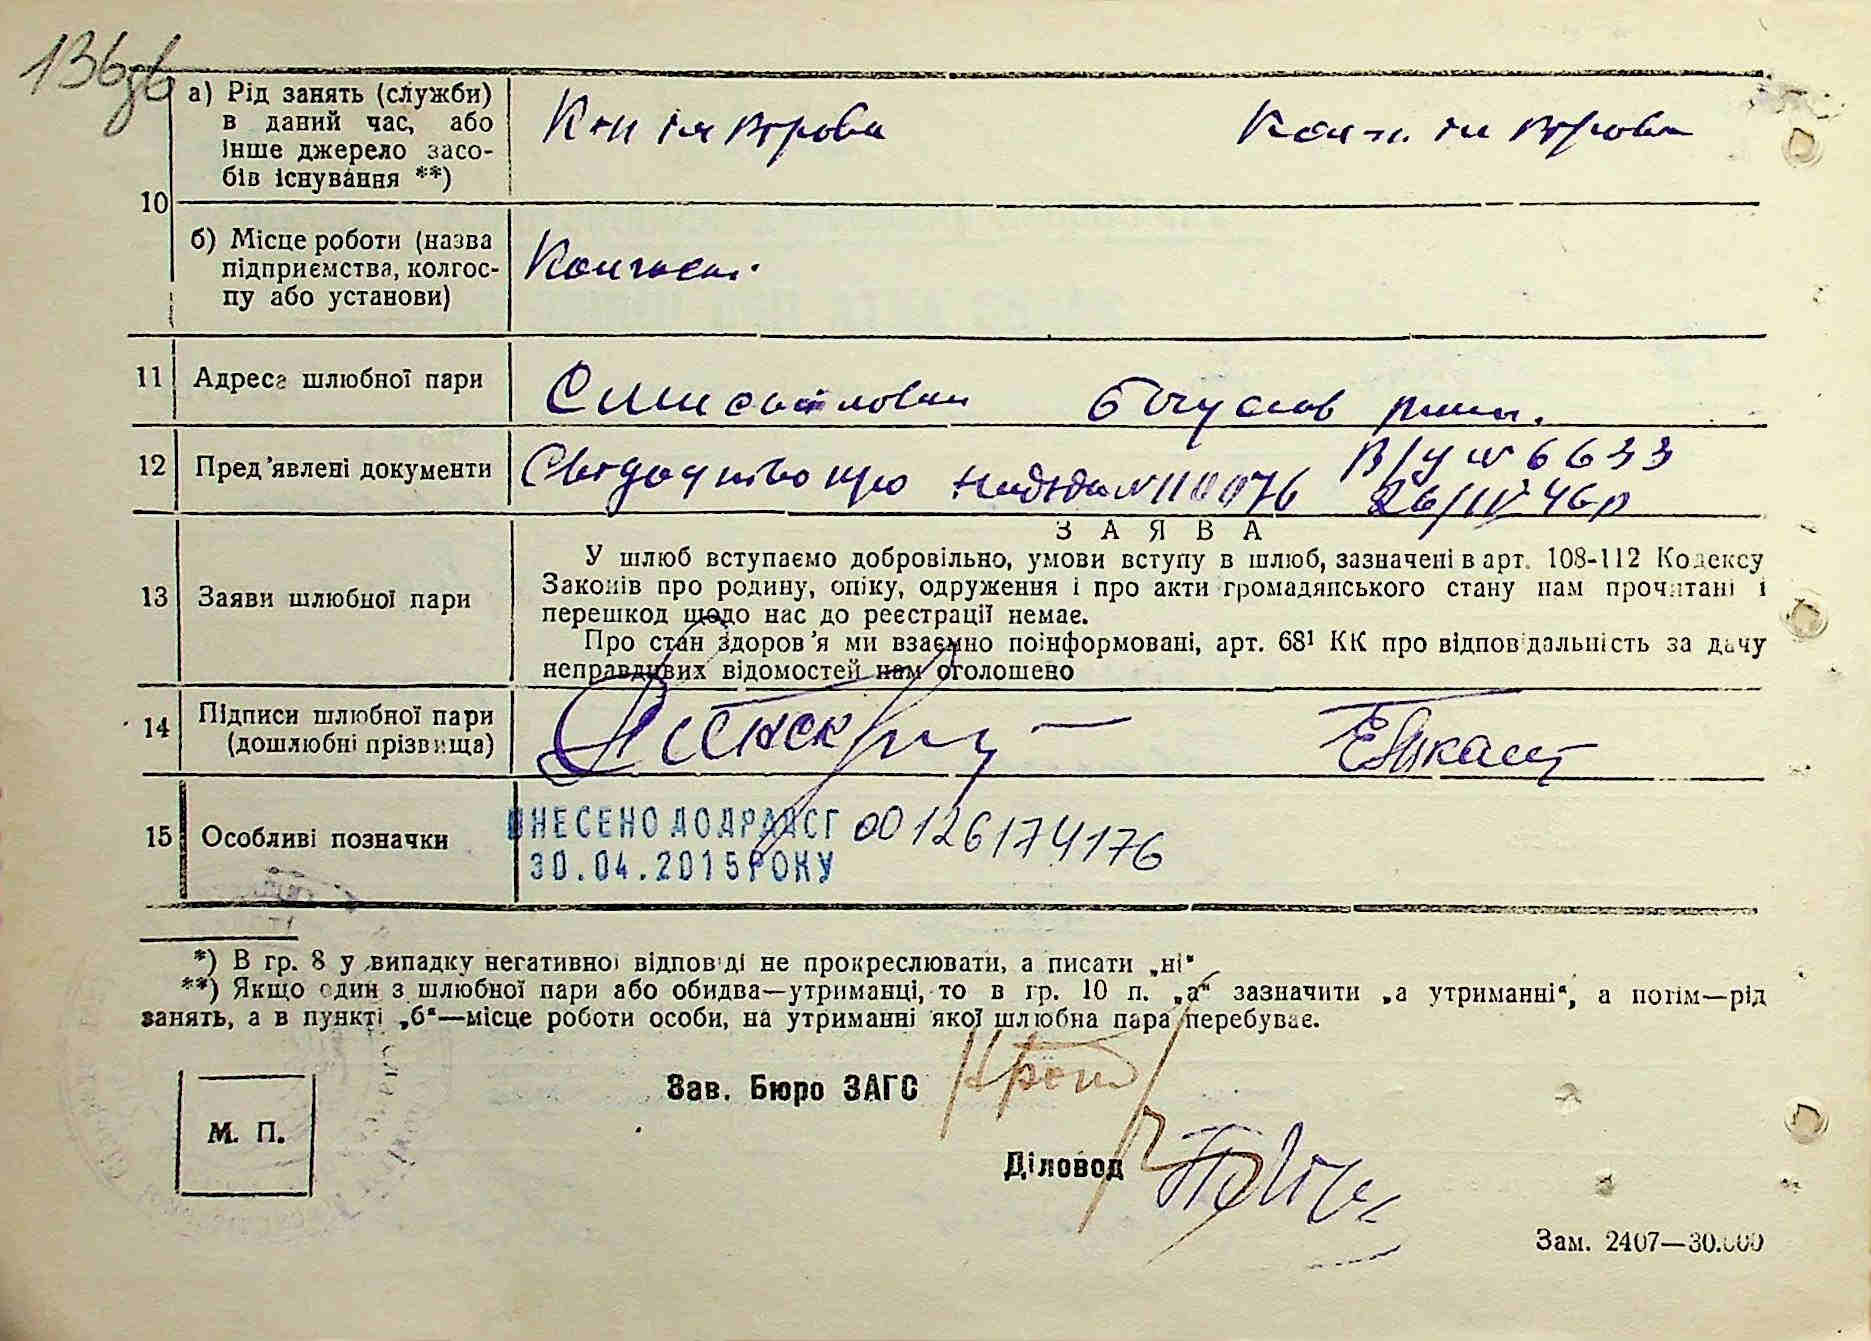 136зв
а) Рід занять (служби)
в даний час, або
інше джерело засо-
бів існування **)
10
б) Місце роботи (назва
підприємства, колгос-
пу або установи)
11 Адреса шлюбної пари
Богуслав
12 Пред'явлені документи
Свідоцтво про № 6633
26/IV 46р
ЗАЯВА
13 Заяви шлюбної пари
У шлюб вступаємо добровільно, умови вступу в шлюб, зазначені в арт. 108-112 Кодексу
Законів про родину, опіку, одруження і про акти громадянського стану нам прочитані і
перешкод щодо нас до реєстрації немає.
Про стан здоров'я ми взаємно поінформовані, арт. 68¹ КК про відповідальність за дачу
неправдивих відомостей нам оголошено
14 Підписи шлюбної пари
(дошлюбні прізвища)
15 Особливі позначки
ВНЕСЕНО ДО ДРАЦСГ 00126174176
30.04.2015 РОКУ
*) В гр. 8 у випадку негативної відповіді не прокреслювати, а писати „ні“
**) Якщо один з шлюбної пари або обидва—утриманці, то в гр. 10 п. „а“ зазначити „а утриманні“, а потім—рід
занять, а в пункті „б“—місце роботи особи, на утриманні якої шлюбна пара перебуває.
Зав. Бюро ЗАГС
М. П.
Діловод
Зам. 2407—30.000